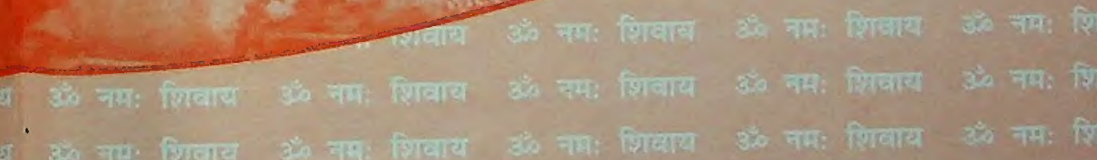 शिवाय ॐ नमः शिवाय ॐ नमः शिवाय ॐ नमः शि
य ॐ नमः शिवाय ॐ नमः शिवाय ॐ नमः शिवाय ॐ नमः शिवाय ॐ नमः शि
ॐ नमः शिवाय ॐ नमः शिवाय ॐ नमः शिवाय ॐ नमः शिवाय ॐ नमः शि